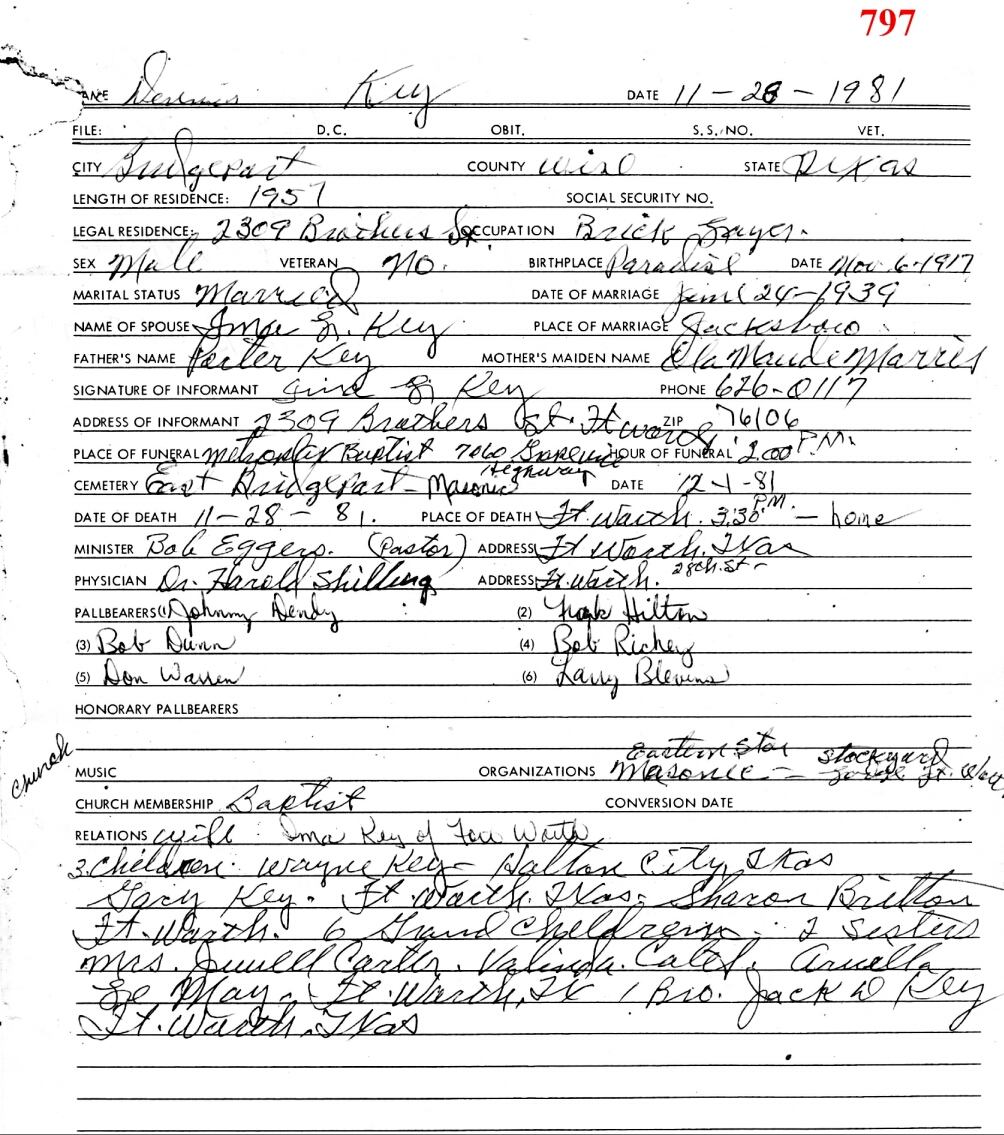 797
NAME Dennis Key DATE 11-28-1981
FILE: D.C. OBIT. S.S. NO. VET.
CITY Bridgeport COUNTY Wise STATE Texas
LENGTH OF RESIDENCE: 1957 SOCIAL SECURITY NO.
LEGAL RESIDENCE: 2309 Brothers St OCCUPATION Brick Layer.
SEX Male VETERAN No. BIRTHPLACE Paradise DATE Nov. 6-1917
MARITAL STATUS Married DATE OF MARRIAGE June 24-1939
NAME OF SPOUSE Ima L. Key PLACE OF MARRIAGE Jacksboro
FATHER'S NAME Porter Key MOTHER'S MAIDEN NAME Ola Maude Marris
SIGNATURE OF INFORMANT L. Key PHONE 626-0117
ADDRESS OF INFORMANT 2309 Brothers St. Ft Worth ZIP 76106
PLACE OF FUNERAL Metroplex Baptist 7060 Grapevine Highway HOUR OF FUNERAL 2:00 P.M.
CEMETERY East Bridgeport - Masonic DATE 12-1-81
DATE OF DEATH 11-28-81. PLACE OF DEATH Ft. Worth. 3:30 P.M. - home
MINISTER Bob Eggers. (Pastor) ADDRESS Ft Worth. Txas
PHYSICIAN Dr. Harold Shilling ADDRESS Ft. Worth. 28th. St-
PALLBEARERS (1) Johnny Dendy (2) Hilton
(3) Bob Dunn (4) Bob Richey
(5) Don Warren (6) Larry Blevins
HONORARY PALLBEARERS
Church
MUSIC ORGANIZATIONS Eastern Star Masonic - Stockyard Lodge Ft. Worth
CHURCH MEMBERSHIP Baptist CONVERSION DATE
RELATIONS Wife: Ima Key of Fort Worth
3 Children: Wayne Key - Halton City, Txas
Gary Key. Ft. Worth. Txas; Sharon Britton
Ft. Worth. 6 Grand Children; 2 Sisters
Mrs. Juell Carter. Valinda. Calif. Aruella
May - Ft. Worth, TX 1 Bro. Jack D Key
Ft. Worth. Txas